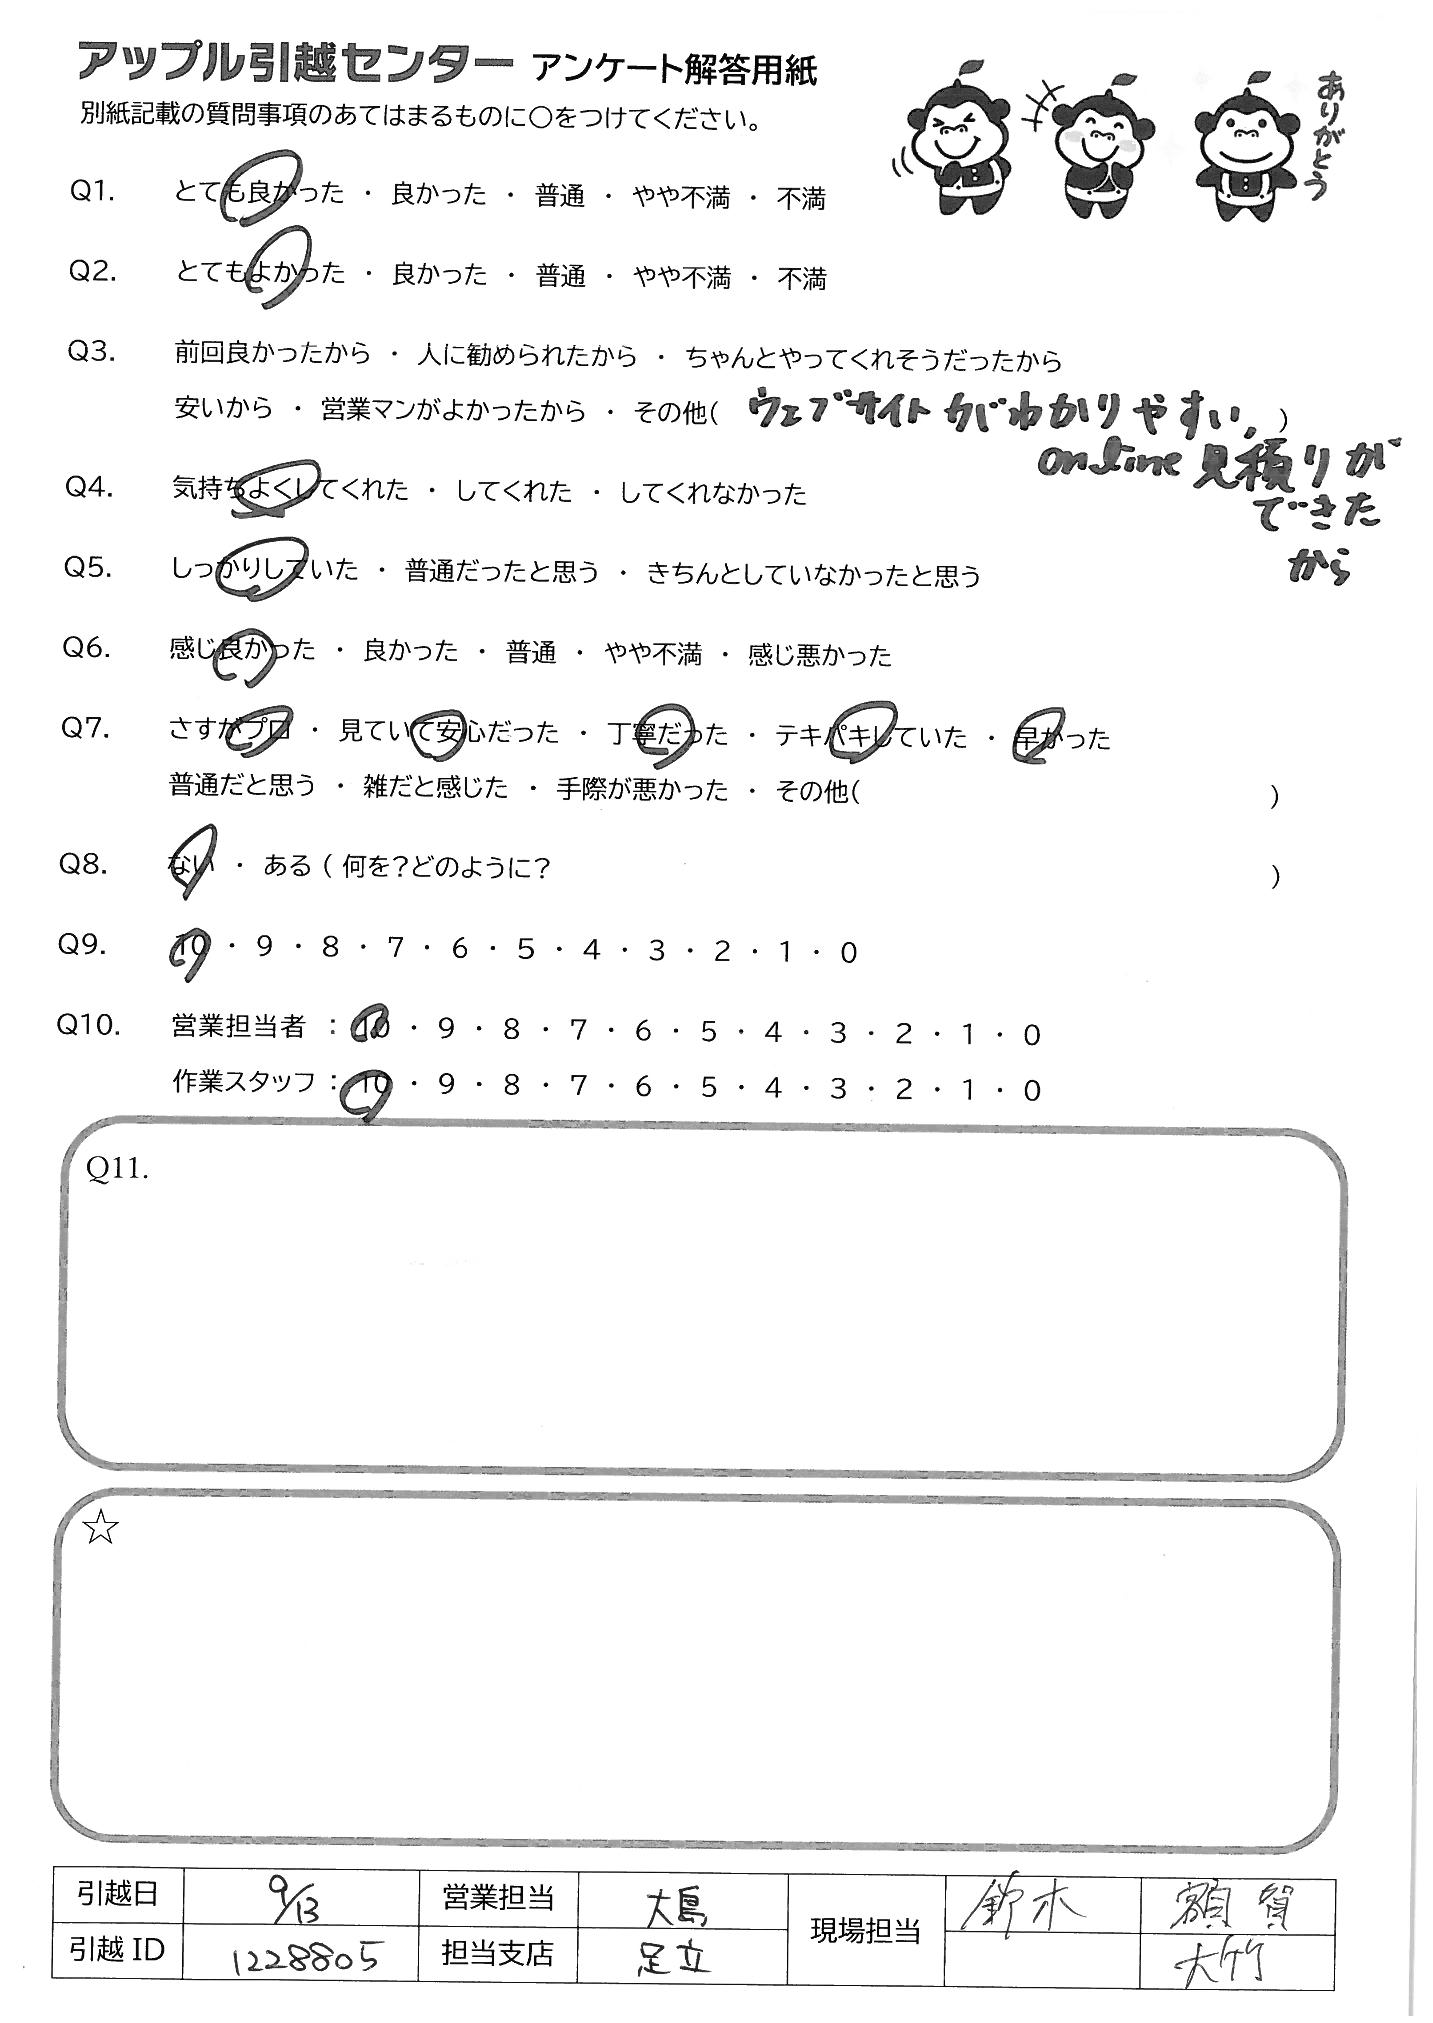 アップル引越センター アンケート解答用紙
別紙記載の質問事項のあてはまるものに〇をつけてください。
ありがとう
Q1. とても良かった ・ 良かった ・ 普通 ・ やや不満 ・ 不満
Q2. とてもよかった ・ 良かった ・ 普通 ・ やや不満 ・ 不満
Q3. 前回良かったから ・ 人に勧められたから ・ ちゃんとやってくれそうだったから
安いから ・ 営業マンがよかったから ・ その他( ウェブサイトがわかりやすい, )
online見積りが
できた
から
Q4. 気持ちよくしてくれた ・ してくれた ・ してくれなかった
Q5. しっかりしていた ・ 普通だったと思う ・ きちんとしていなかったと思う
Q6. 感じ良かった ・ 良かった ・ 普通 ・ やや不満 ・ 感じ悪かった
Q7. さすがプロ ・ 見ていて安心だった ・ 丁寧だった ・ テキパキしていた ・ 早かった
普通だと思う ・ 雑だと感じた ・ 手際が悪かった ・ その他( )
Q8. ない ・ ある ( 何を?どのように? )
Q9. 10 ・ 9 ・ 8 ・ 7 ・ 6 ・ 5 ・ 4 ・ 3 ・ 2 ・ 1 ・ 0
Q10. 営業担当者 : 10 ・ 9 ・ 8 ・ 7 ・ 6 ・ 5 ・ 4 ・ 3 ・ 2 ・ 1 ・ 0
作業スタッフ : 10 ・ 9 ・ 8 ・ 7 ・ 6 ・ 5 ・ 4 ・ 3 ・ 2 ・ 1 ・ 0
Q11.
☆
引越日 9/13 営業担当 大島 現場担当 鈴木 額賀
引越ID 1228805 担当支店 足立 大竹